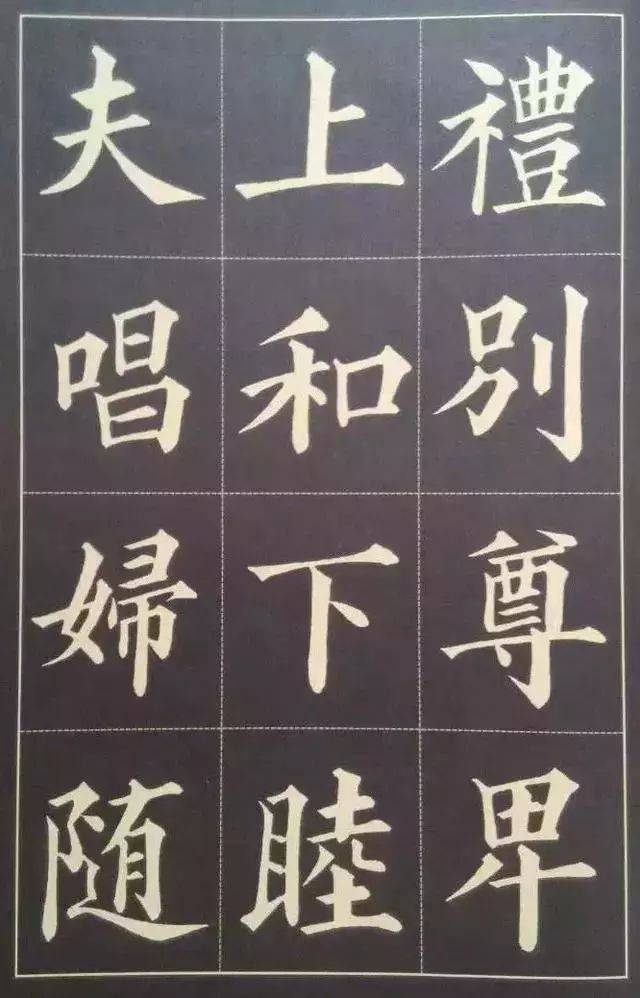 禮別尊卑
上和下睦
夫唱婦随